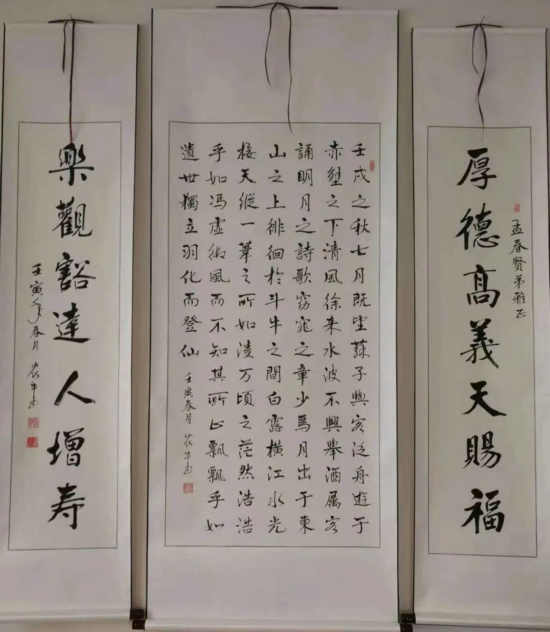 孟春贤弟雅正
厚德高義天賜福
壬戌之秋七月既望蘇子與客泛舟遊于
赤壁之下清風徐来水波不興舉酒属客
誦明月之詩歌窈窕之章少焉月出于東
山之上徘徊於斗牛之間白露横江水光
接天縱一葦之所如凌万頃之茫然浩浩
乎如馮虚御風而不知其所止飄飄乎如
遺世獨立羽化而登仙 壬寅春月
樂觀豁達人增寿
壬寅年春月